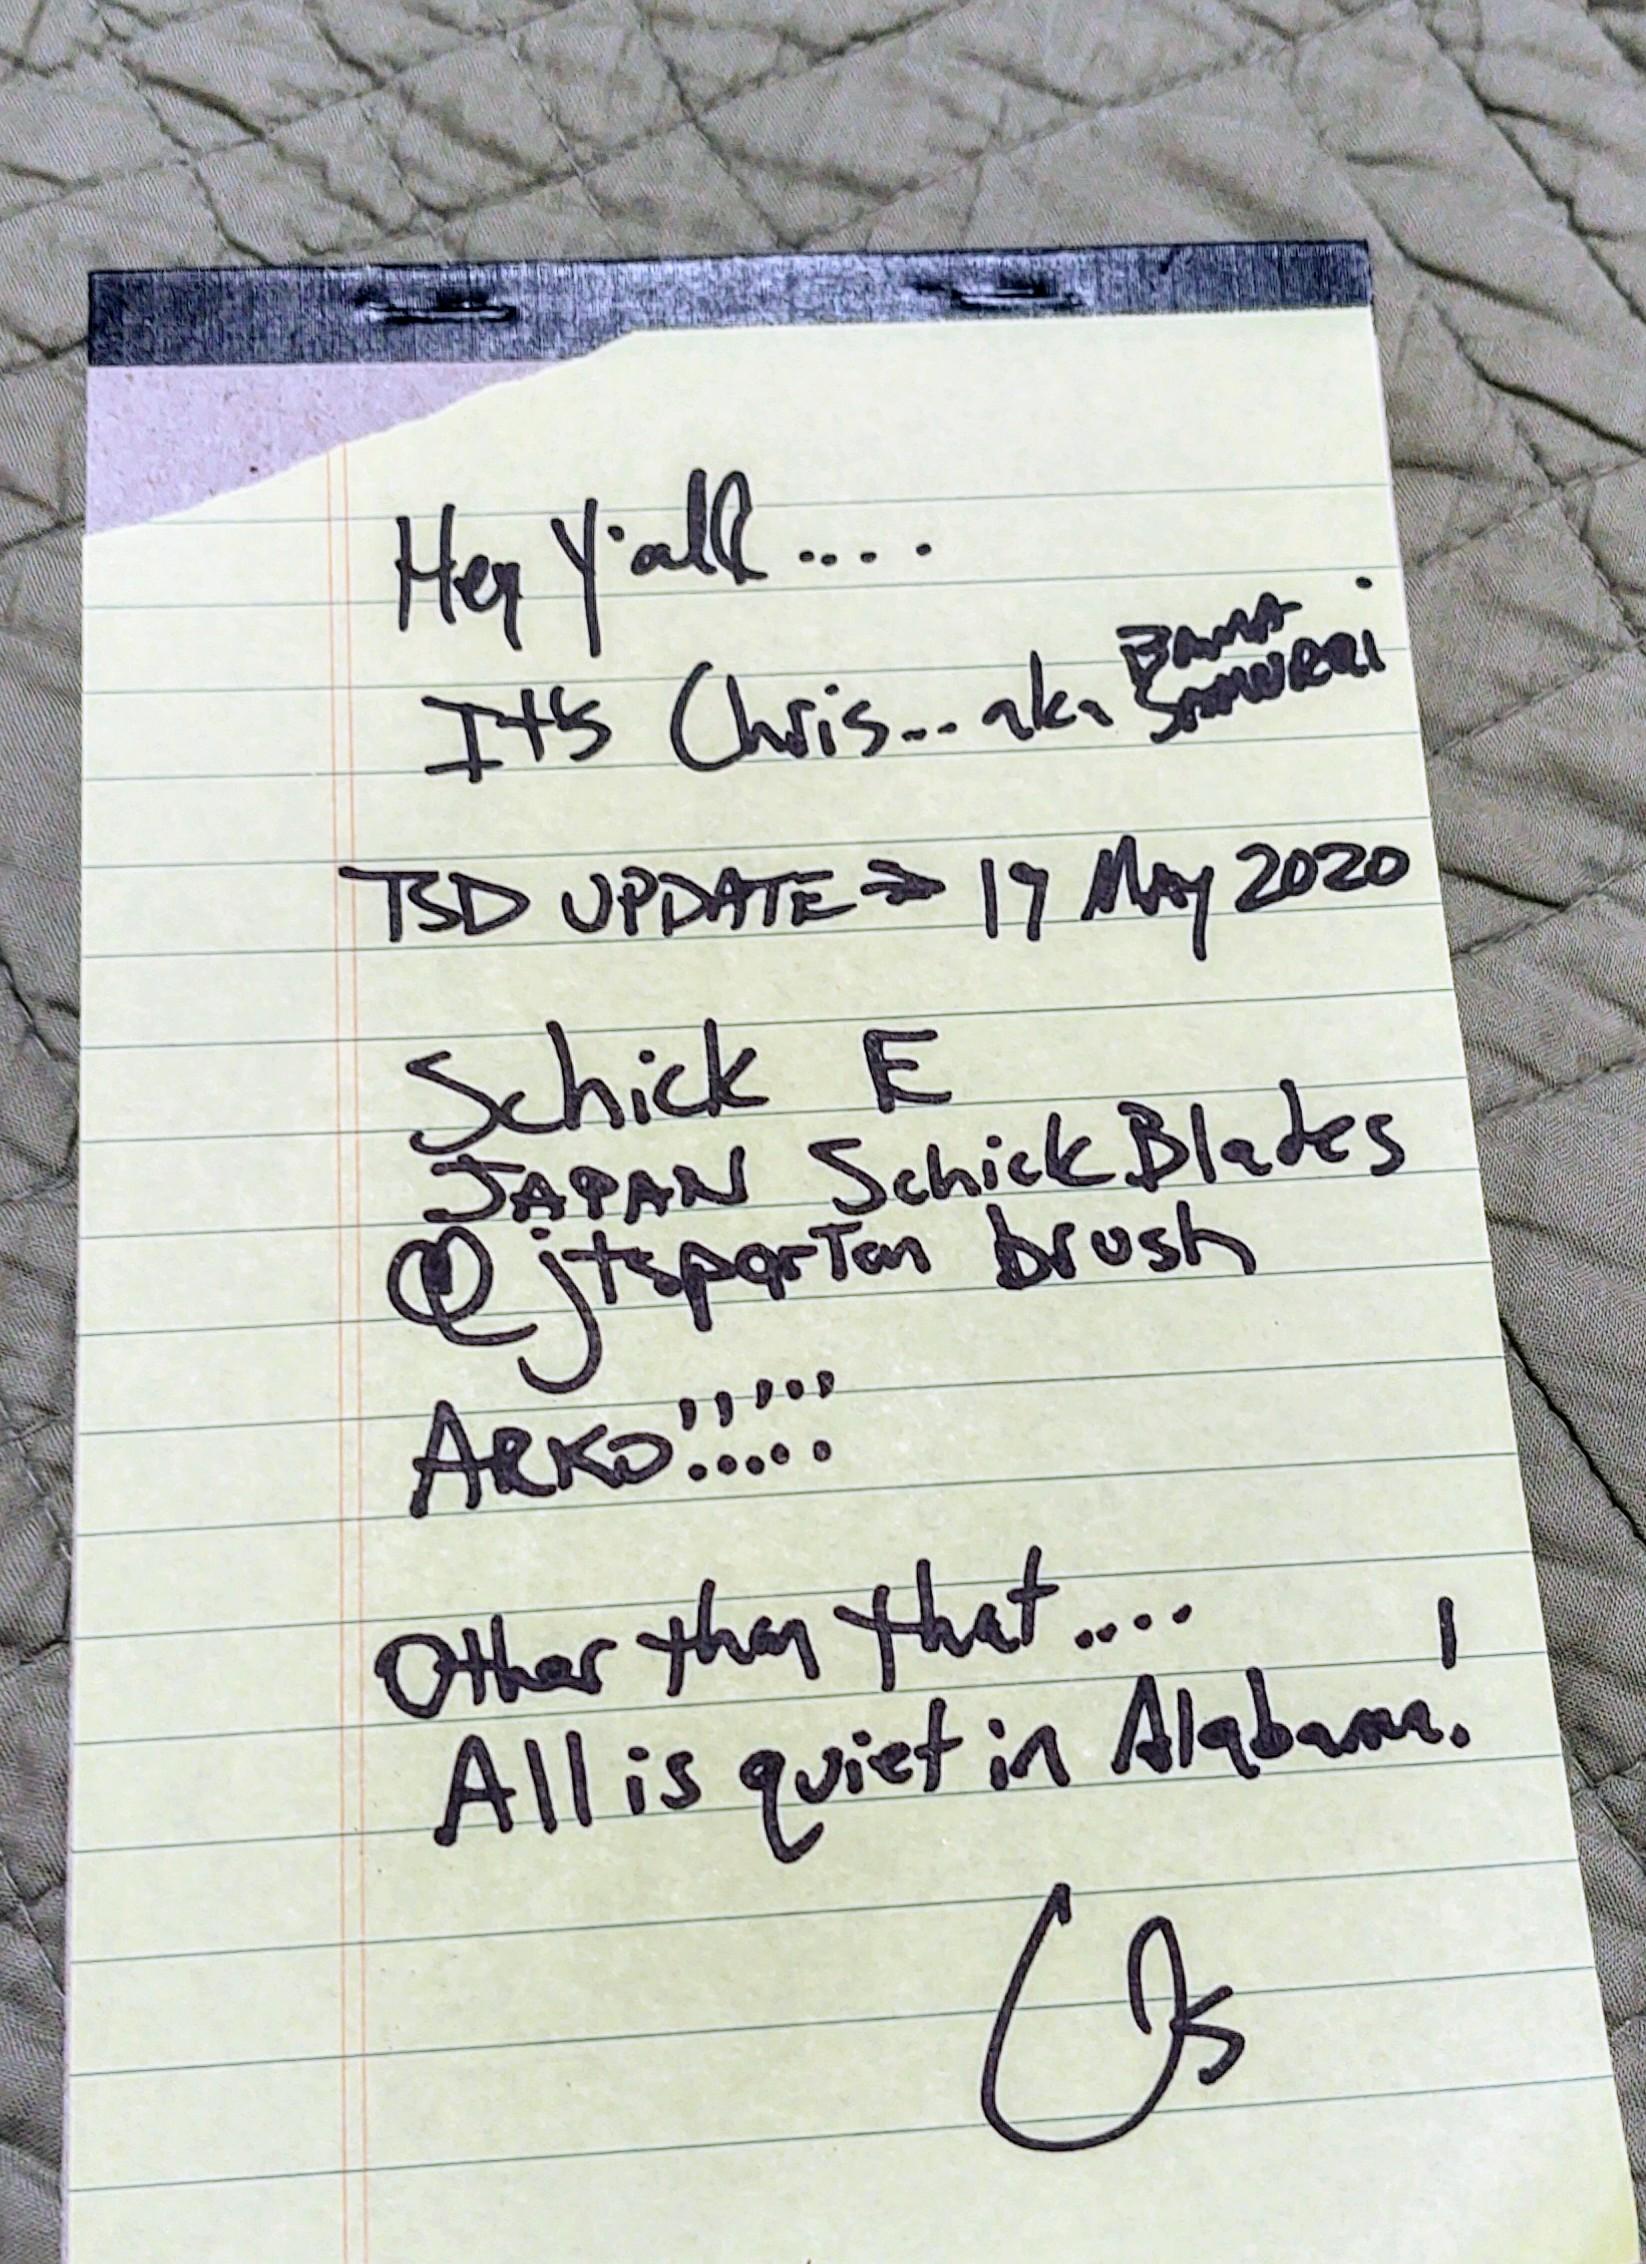 Hey Y'all ....
It's Chris... aka BAMA SAMURAI
TSD UPDATE ⇒ 19 May 2020
Schick E
JAPAN Schick Blades
@jtspartan brush
ARKO!!!!!
Other than that ....
All is quiet in Alabama!